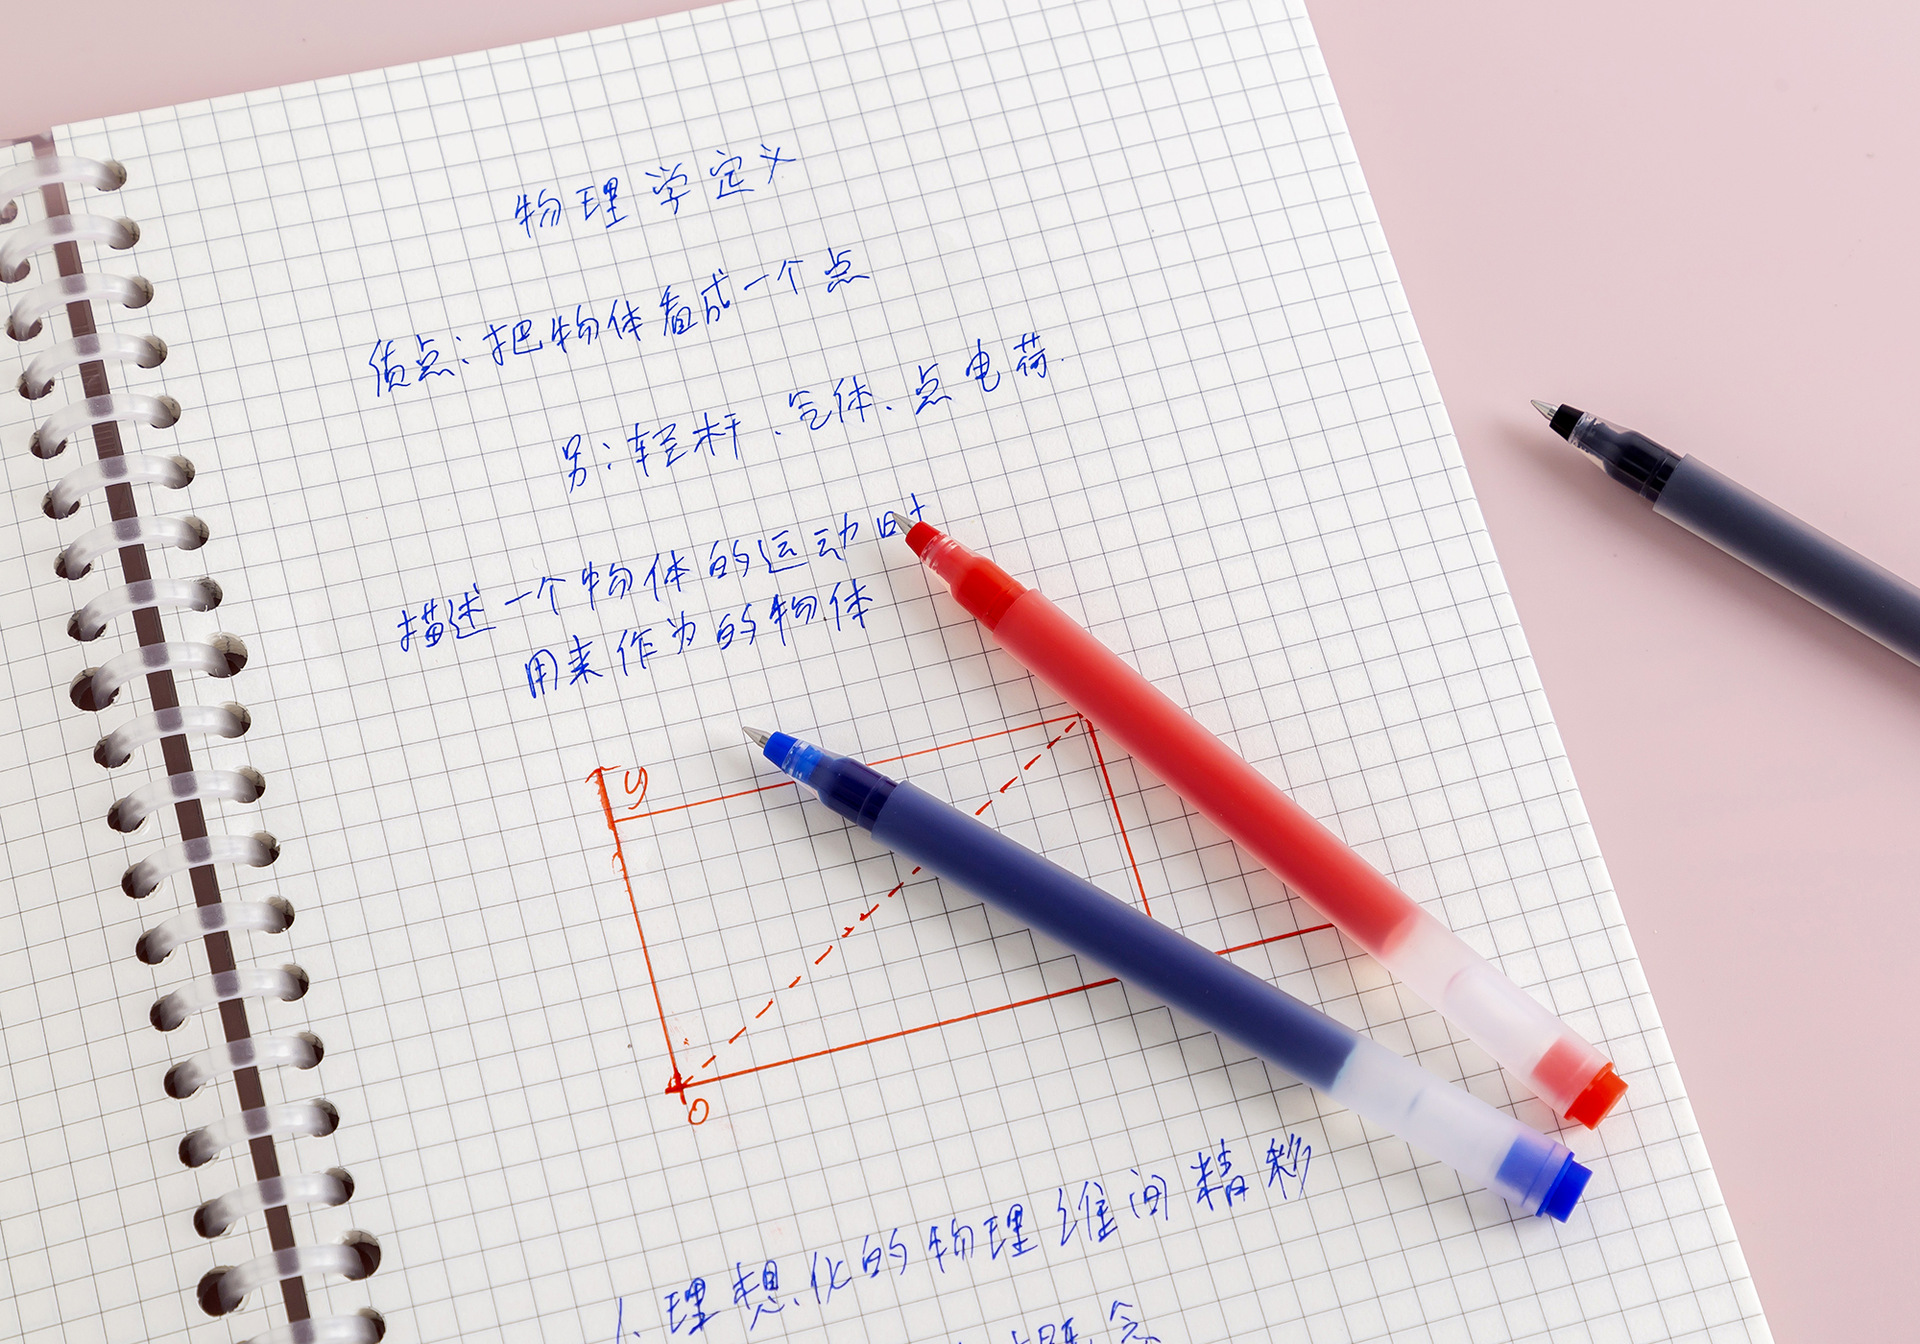 物理学定义
质点:把物体看成一个点
另:轻杆、气体、点电荷.
描述一个物体的运动时
用来作为的物体
y
0
1.理想化的物理维间精移
概念